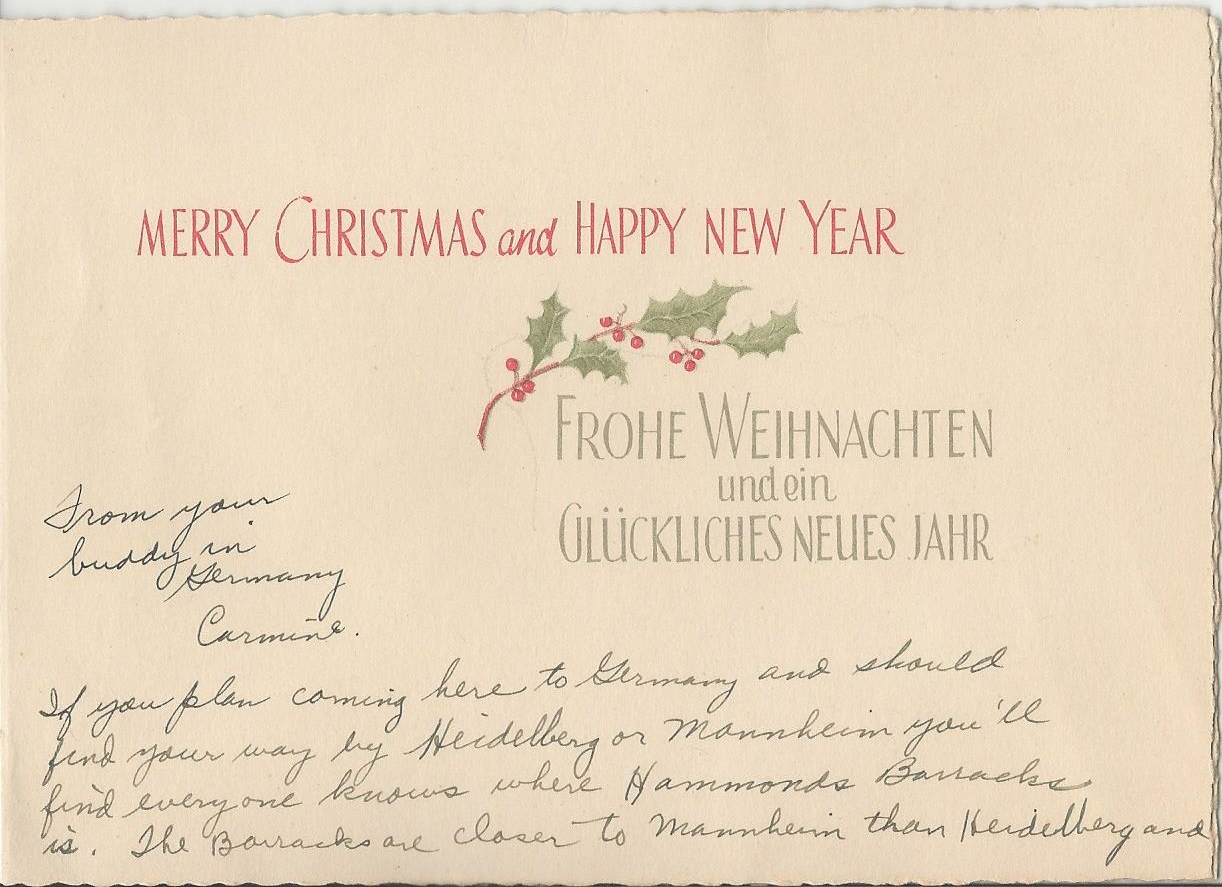 MERRY CHRISTMAS and HAPPY NEW YEAR
FROHE WEIHNACHTEN
und ein
GLÜCKLICHES NEUES JAHR
From your
buddy in
Germany
Carmine.
If you plan coming here to Germany and should
find your way by Heidelberg or Mannheim you'll
find everyone knows where Hammonds Barracks
is. The Barracks are closer to Mannheim than Heidelberg and